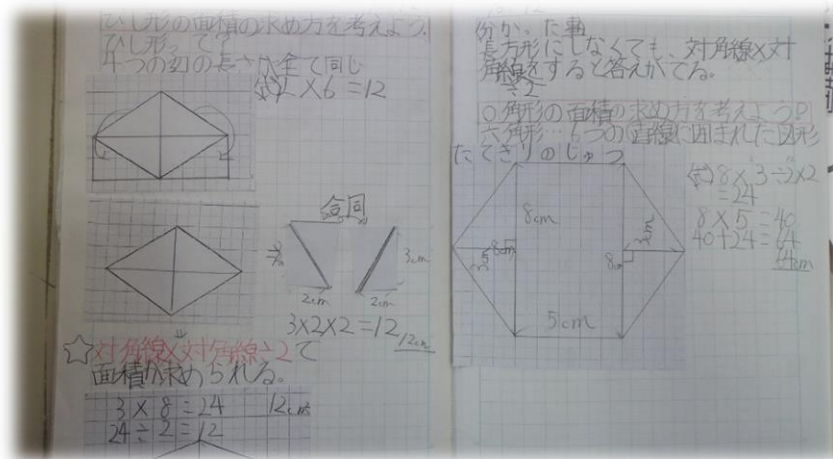 ひし形の面積の求め方を考えよう。
ひし形って?
4つの辺の長さが全て同じ
×6=12
合同
3cm
2cm
2cm
3×2×2=12
12cm
☆対角線×対角線÷2で
面積が求められる。
3×8=24 12cm²
24÷2=12
分かった事
長方形にしなくても、対角線×対
角線をすると答えがでる。
÷2
○角形の面積の求め方を考えよう
六角形…6つの直線に囲まれた図形
たてきりのじゅつ
8cm
3cm
8cm
3cm
8cm
5cm
(式)8×3÷2×2
=24
8×5=40
40+24=64
64cm